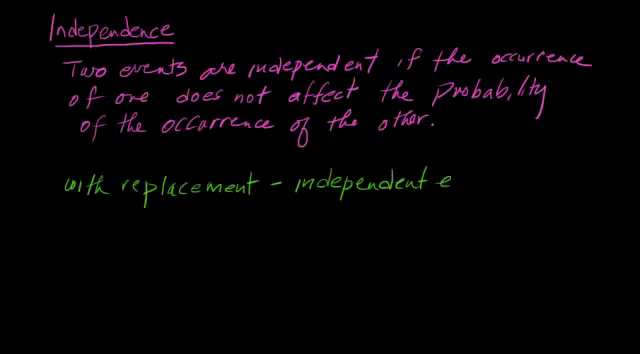 Independence
Two events are independent if the occurrence
of one does not affect the Probability
of the occurrence of the other.
with replacement - independent e